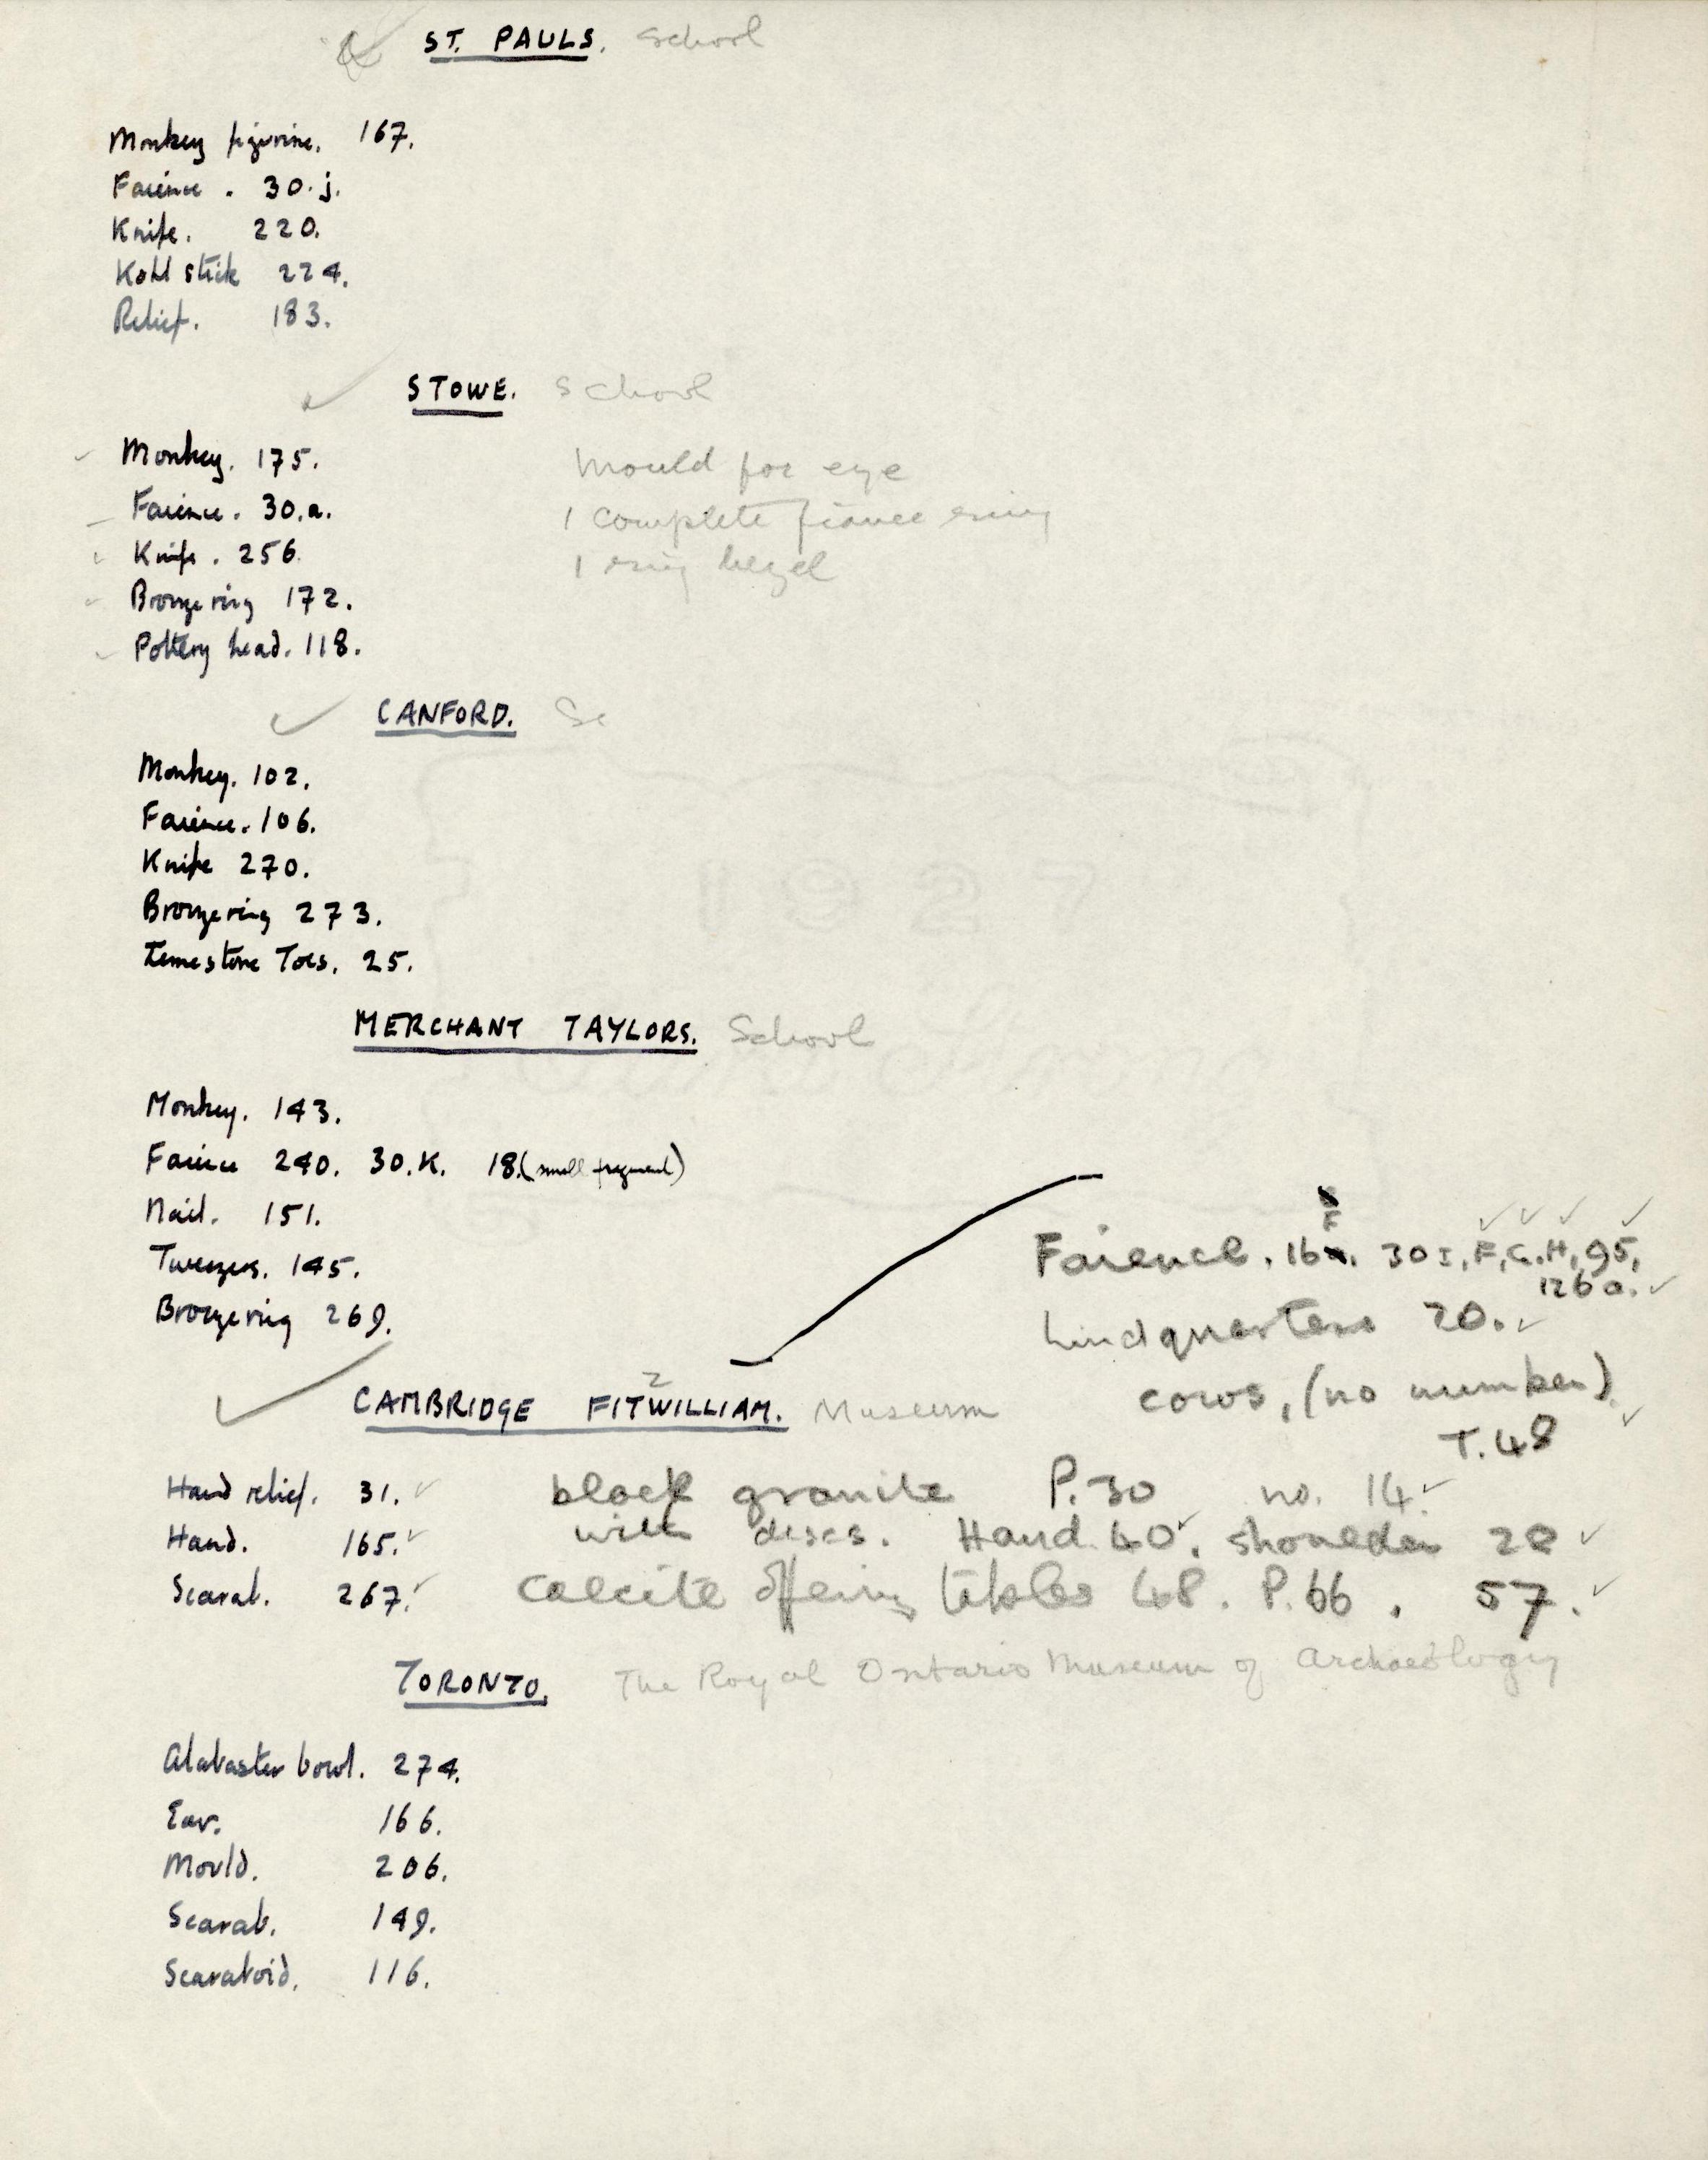 ST. PAULS. School
Monkey figurine. 167.
Faience. 30.j.
Knife. 220.
Kohl stick 224.
Relief. 183.
STOWE. School
Monkey. 175.
Faience. 30.a.
Knife. 256.
Bronze ring 172.
Pottery head. 118.
Mould for eye
1 complete fiance ring
1 ring bezel
CANFORD. Sc
Monkey. 102.
Faience. 106.
Knife 270.
Bronze ring 273.
Limestone Toes. 25.
MERCHANT TAYLORS. School
Monkey. 143.
Faience 240. 30.K. 18.(small fragment)
Nail. 151.
Tweezers. 145.
Bronze ring 269.
Faience. 16F. 30I, F, G. H, 95,
126a.
hindquarters 20.
cows, (no number)
T.48
CAMBRIDGE FITZWILLIAM. Museum
Hand relief. 31. black granite P.30 no. 14.
Hand. 165. with discs. Hand. 40. shoulder 28
Scarab. 267. Calcite offering tables 48. P.66. 57.
TORONTO. The Royal Ontario Museum of Archaeology
Alabaster bowl. 274.
Ear. 166.
Mould. 206.
Scarab. 149.
Scaraboid. 116.